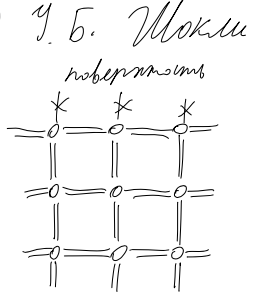 У. Б. Шокли
поверхность